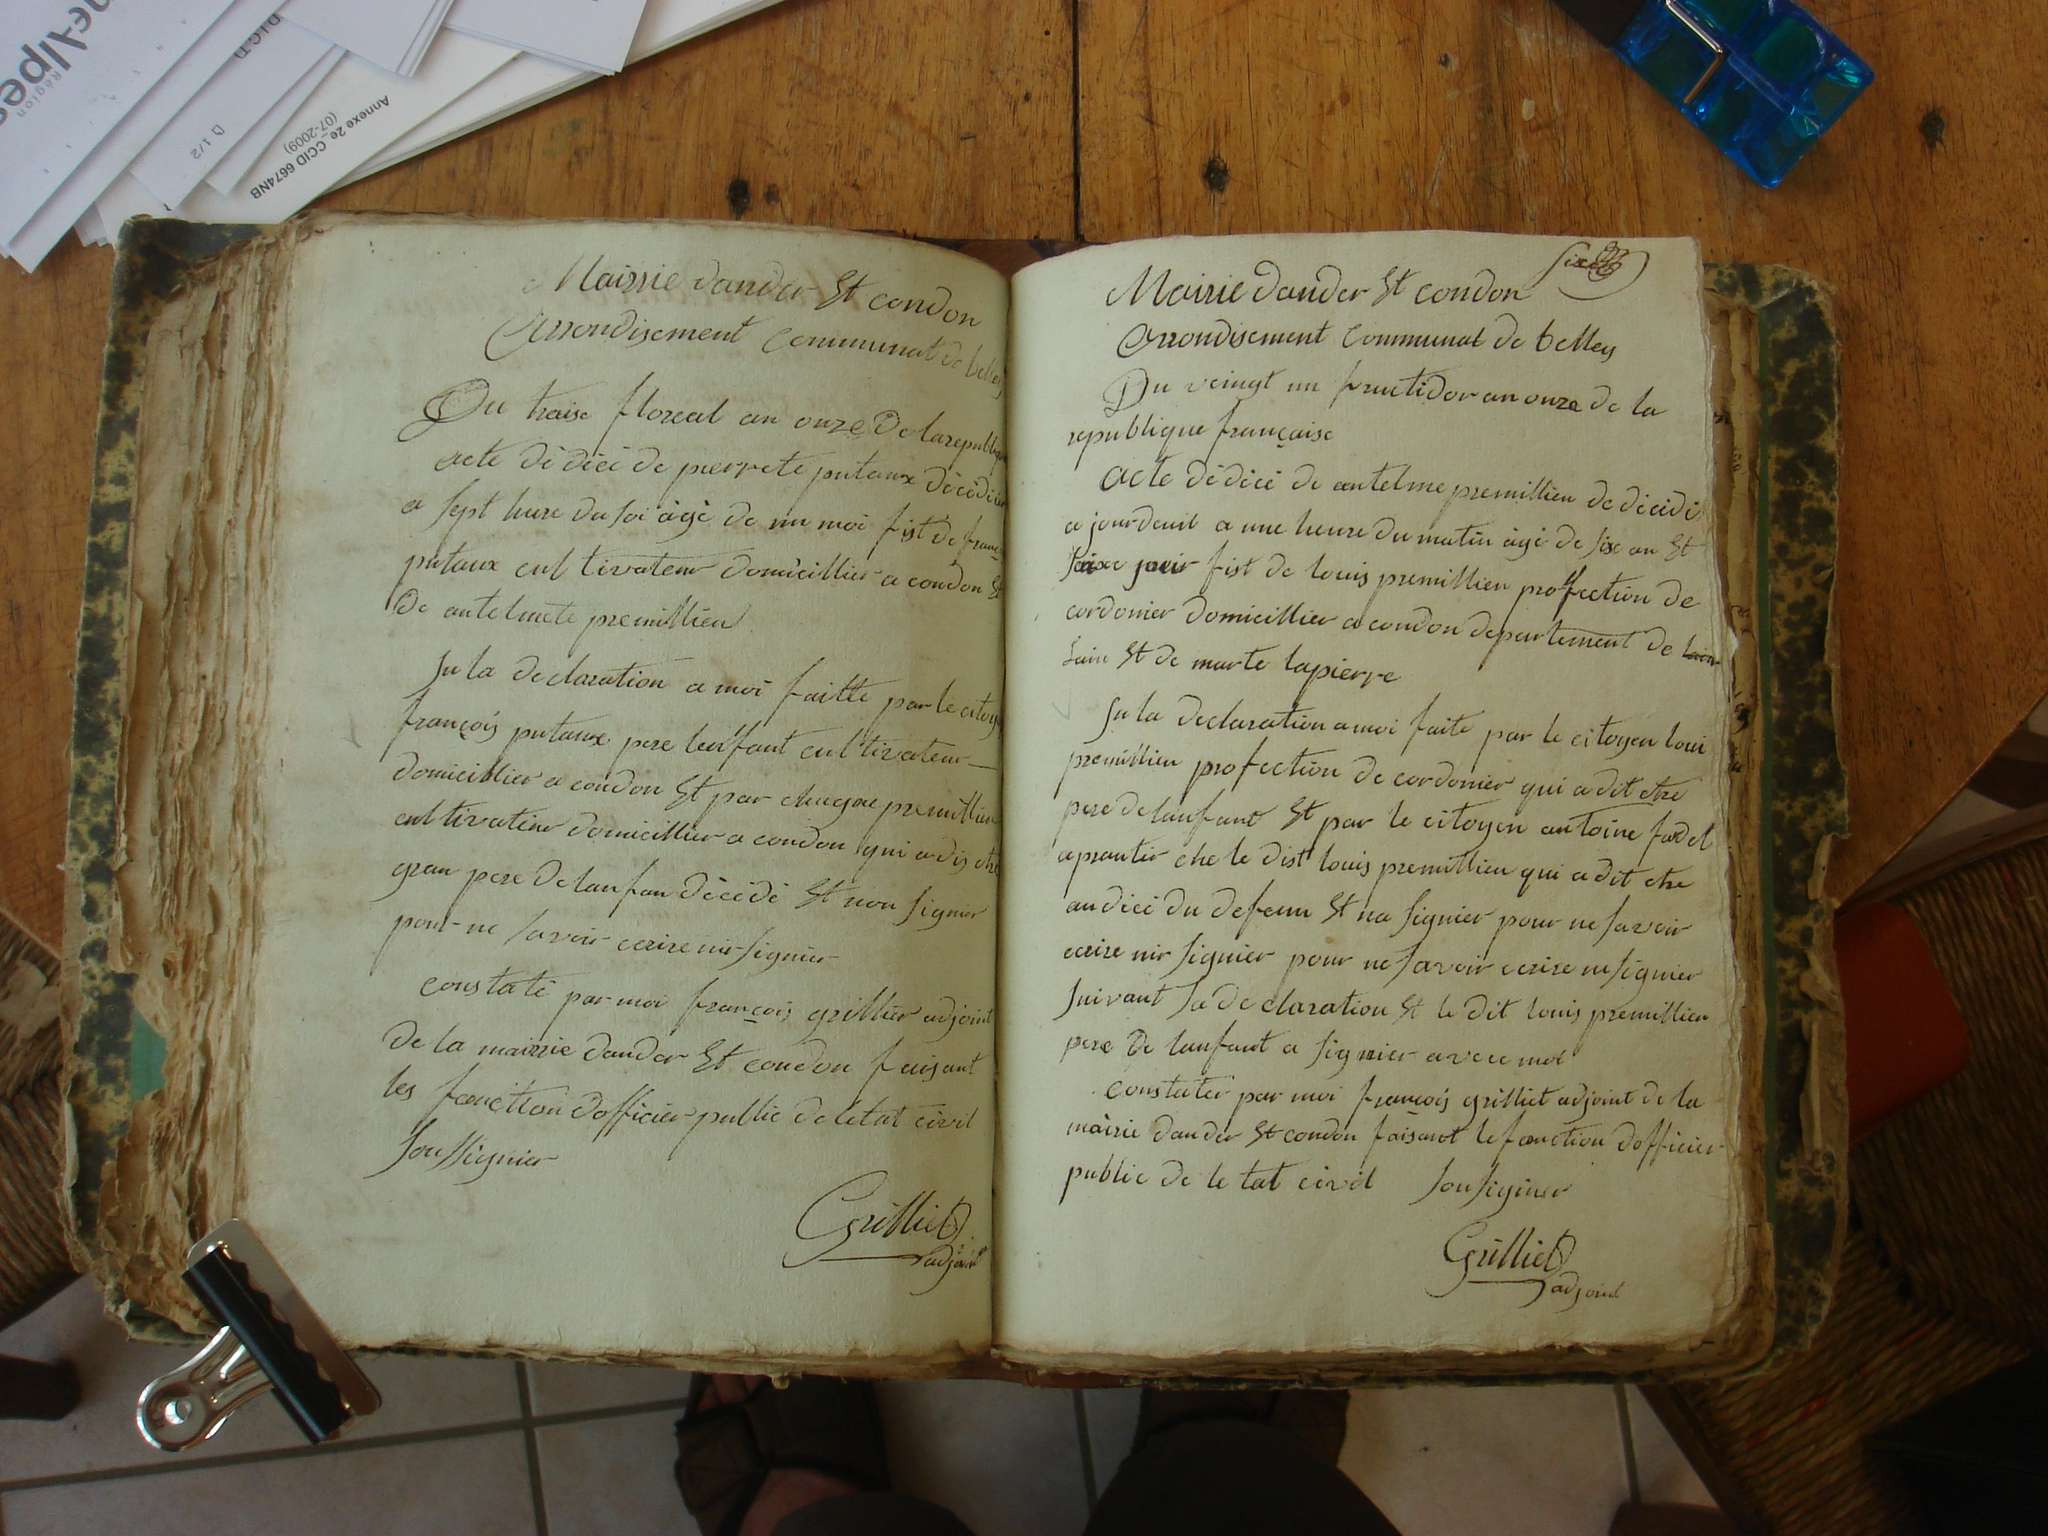 Région
D.I.C.T)
D 1/2
Annexe 2e_CCID 6674NB
(07-2009)
Mairrie dander Et condon
Arrondisement Communal de belley
Du traise floreal an onze De la republique
acte dédicé de pierrete putaux décédé
a sept hure du soi âgé de un moi fist de franç
putaux cultivateur domicillier a condon Et
De antelmete premillieu
Su la declaration a moi faitte par le citoy
françois putaux pere leu'fant cultivateur
domicillier a condon Et par premillieu
cultivateur domicillier a condon qui a dis etre
gran pere De lanfan décédé Et non signier
pour ne savoir ecrire nir signier
constaté par moi françois grillier adjoint
De la mairrie dander Et condon faisant
les fonction dofficier public de létat civil
soussignier
Grilliet
adjoint
Mairie dander Et condon
Arrondisement Communal de belley
Du veingt un fructidor an onze de la
republique française
acte dédicé de antelme premillieu de décédé
a jourdeuil a une heure du matin âgé de six an Et
jour fist de louis premillieu proffection de
cordonier domicillier a condon departement de lain
lain Et de marte lapierre
Su la declaration a moi faite par le citoyen loui
premillieu profection de cordonier qui a dit etre
pere de lanfant Et par le citoyen antoine fardel
aprantir che le dist louis premillieu qui a dit etre
au dicé du defeun Et na signier pour ne savoir
ecrire nir signier pour ne savoir ecrire ne signier
suivant sa declaration Et le dit louis premillieu
pere de lanfant a signier avece moi
Constater par moi françois grilliet adjoint de la
mairie dander Et condon faisant le fonction dofficier
public de le tat civil sousiginer
Grilliet
adjoint